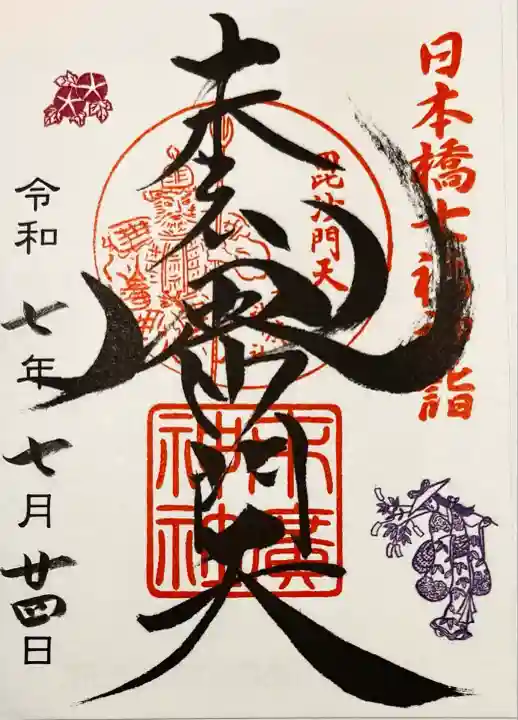 日本橋七福神詣
毘沙門天
毘沙門天
末廣
神社
令和七年七月廿四日